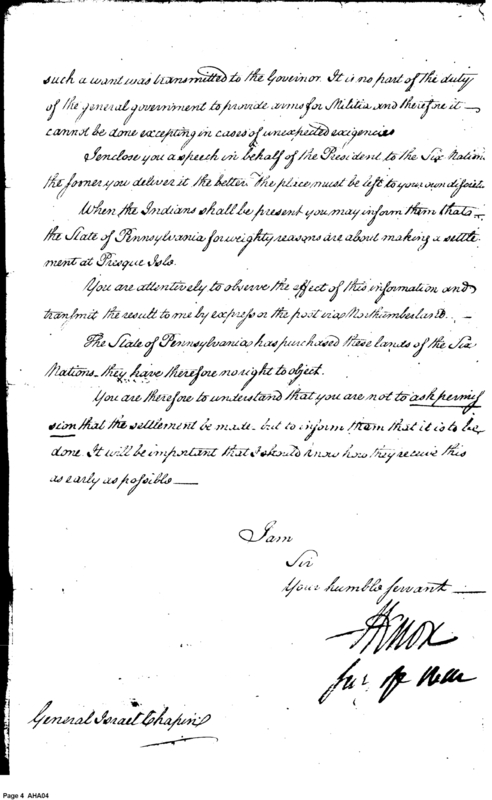 such a want was transmitted to the Governor. It is no part of the duty
of the general government to provide arms for Militia and therefore it
cannot be done excepting in cases of unexpected exigencies
I enclose you a speech in behalf of the President to the Six Nations
the sooner you deliver it the better. the place must be left to your own discretion
When the Indians shall be present you may inform them that
the State of Pennsylvania for weighty reasons are about making a settle
ment at Presque Isle.
You are attentively to observe the effect of this information and
transmit the result to me by express or the post via Northumberland.
The State of Pennsylvania has purchased these lands of the Six
Nations - they have therefore no right to object.
You are therefore to understand that you are not to ask permis
sion that the settlement be made - but to inform them that it is to be
done. It will be important that I should know how they receive this
as early as possible —
I am
Sir
Your humble servant —
HKnox
Sec of War
General Israel Chapin
Page 4 AHA04